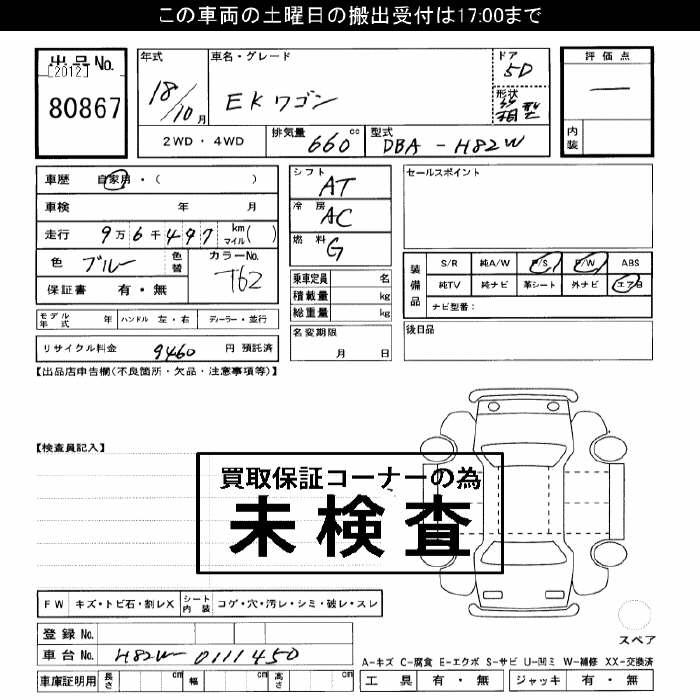 この車両の土曜日の搬出受付は17:00まで
出品No.
[2012]
80867
年式
18/10月
車名・グレード
EKワゴン
ドア
5D
形状
箱型
評価点
―
内装
2WD・4WD
排気量
660 cc
型式
DBA-H82W
車歴 自家用・( )
車検 年 月
走行 9万6千497 km マイル( )
色 ブルー 色替 カラーNo. T62
保証書 有・無
シフト
AT
冷房
AC
燃料
G
乗車定員 名
積載量 kg
総重量 kg
セールスポイント
装備品
S/R 純A/W P/S P/W ABS
純TV 純ナビ 革シート 外ナビ エアB
ナビ型番:
モデル年式 年 ハンドル 左・右 ディーラー・並行
名変期限
月 日
後日品
リサイクル料金 9460 円 預託済
【出品店申告欄(不良箇所・欠品・注意事項等)】
【検査員記入】
買取保証コーナーの為
未検査
FW キズ・トビ石・割レX シート内装 コゲ・穴・汚レ・シミ・破レ・スレ
登録No.
車台No. H82W-0111450
車庫証明用 長さ cm 幅 cm 高さ cm
スペア
A-キズ C-腐食 E-エクボ S-サビ U-凹ミ W-補修 XX-交換済
工具 有・無 ジャッキ 有・無